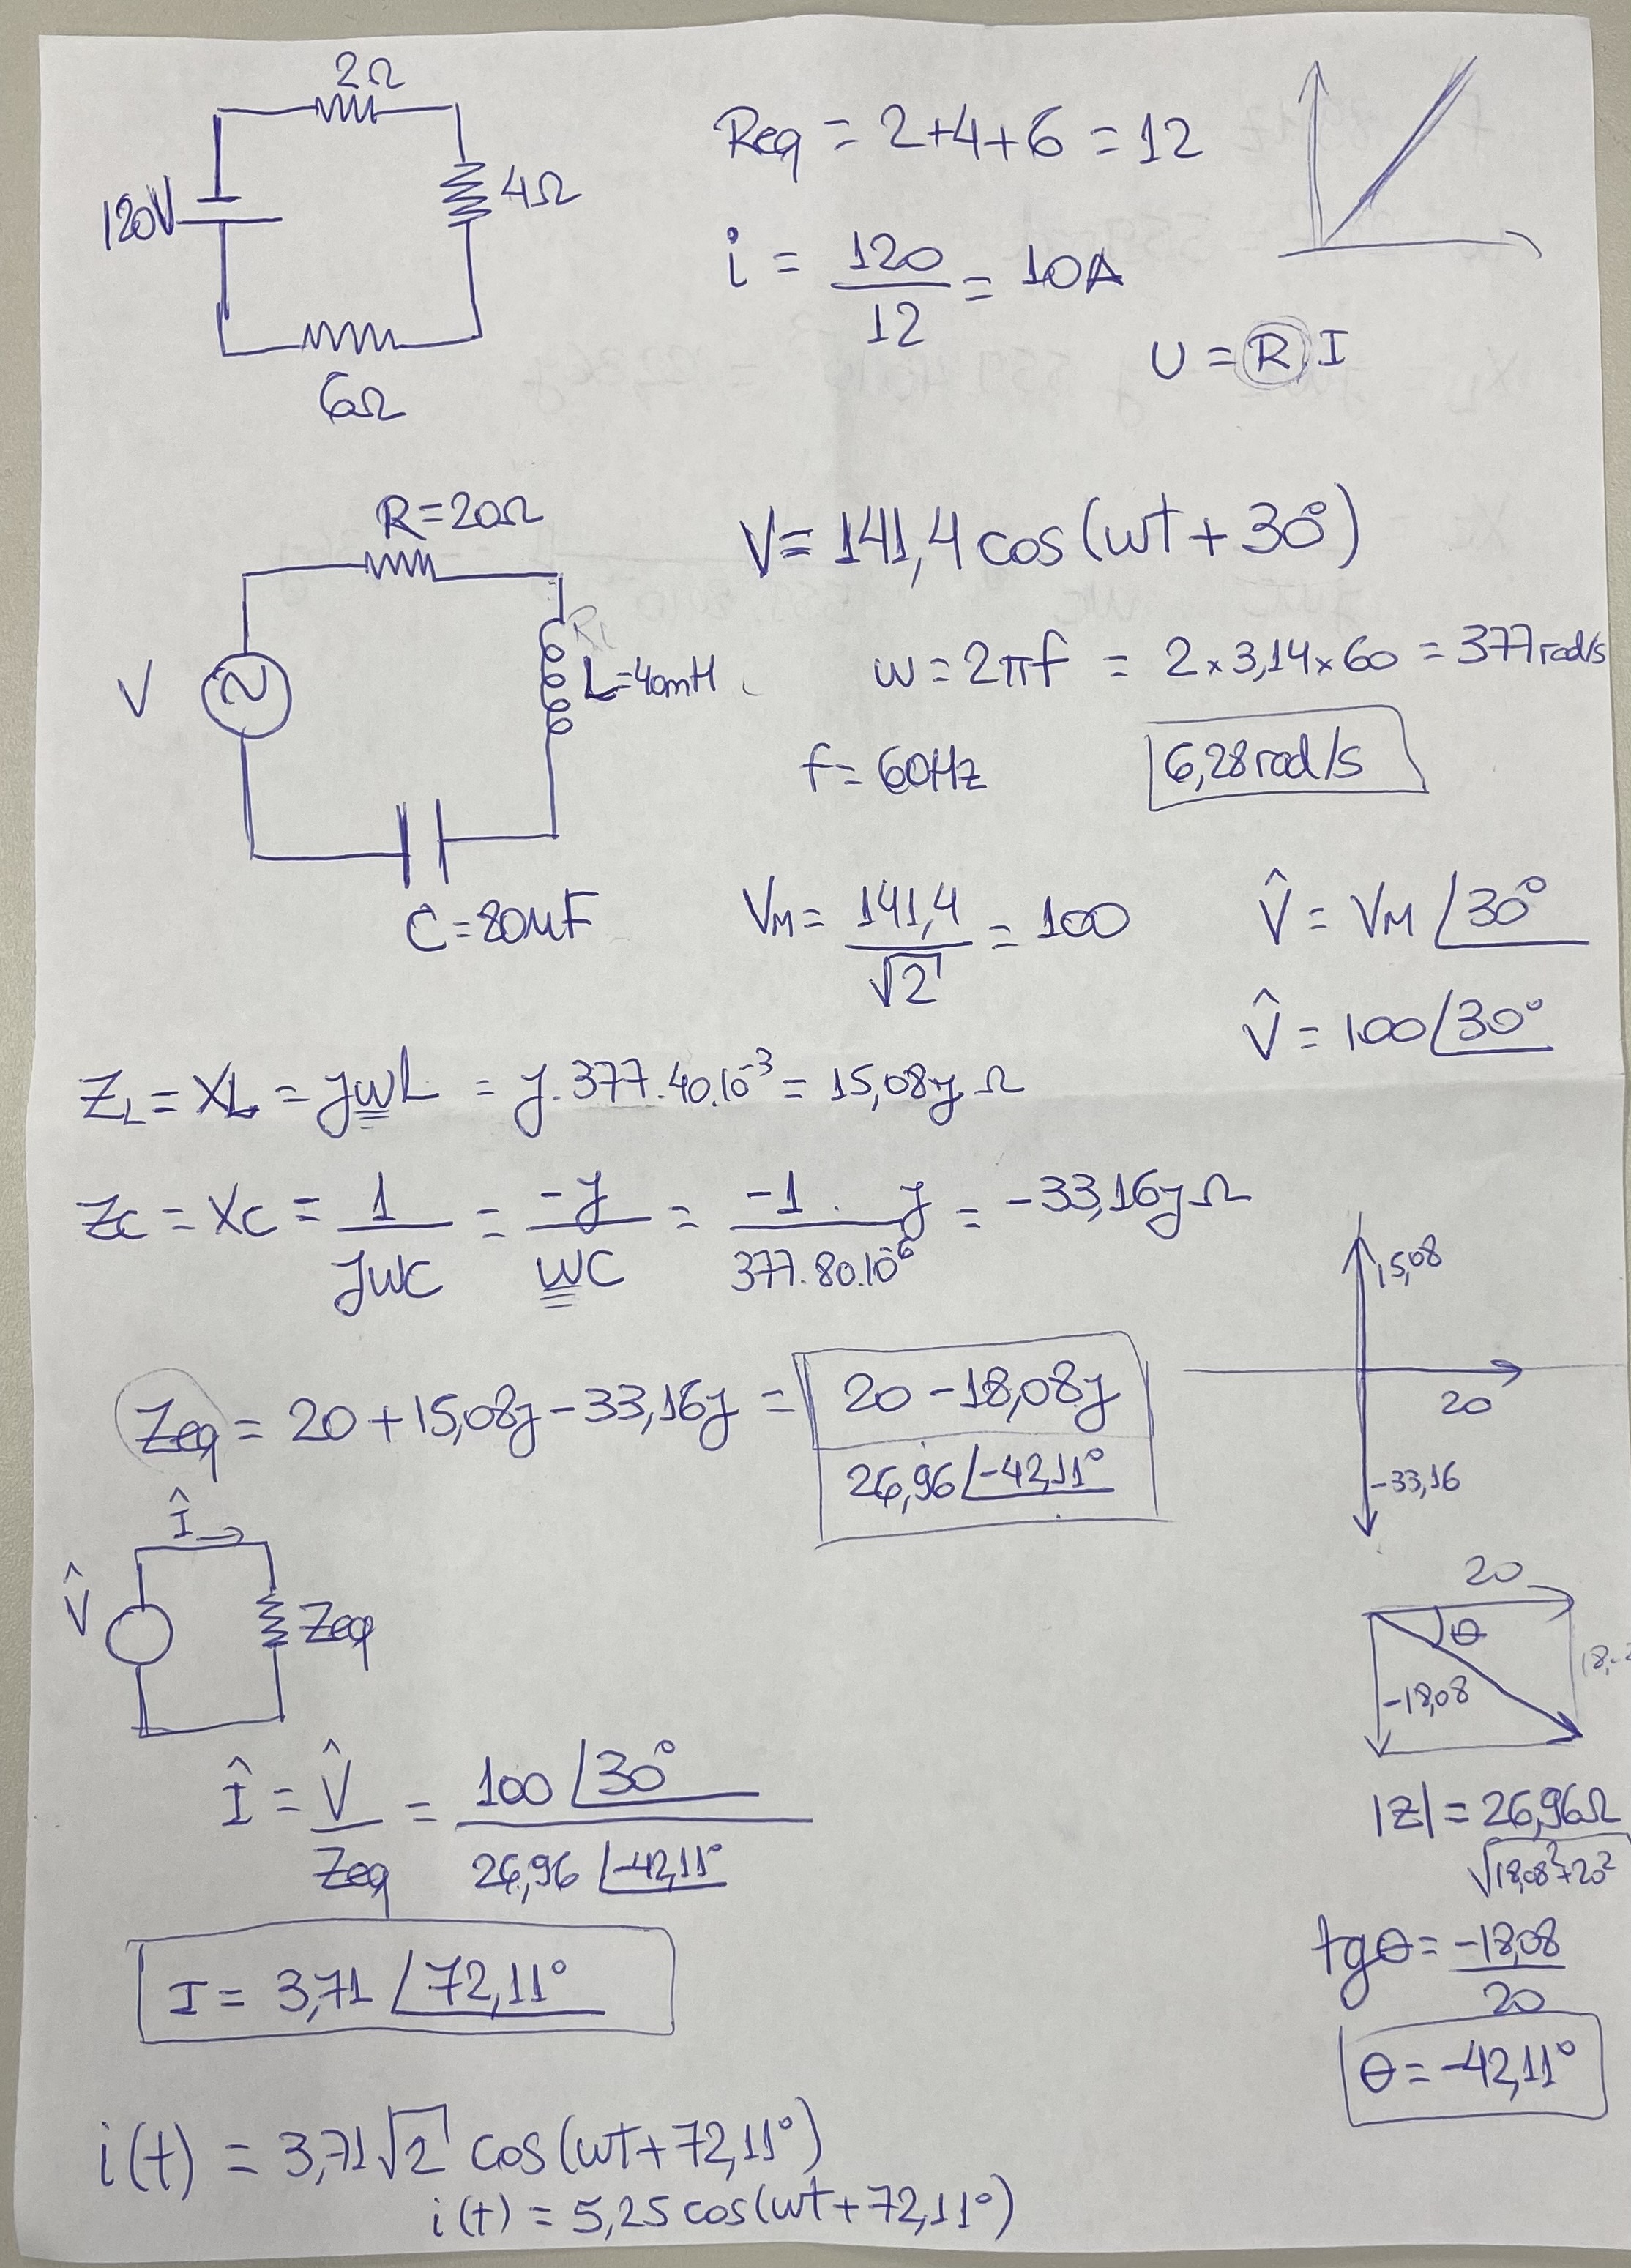 2Ω
120V
4Ω
6Ω
Req = 2+4+6 = 12
i = 120/12 = 10A
U = R.I
R=20Ω
V
R1
L=40mH
C=80μF
V= 141,4 cos(wt + 30°)
w = 2πf = 2×3,14×60 = 377 rad/s
f= 60Hz
6,28 rad/s
VM = 141,4/√2 = 100
V̂ = VM ∠30°
V̂ = 100∠30°
ZL = XL = jwL = j.377.40.10⁻³ = 15,08j Ω
Zc = Xc = 1/jwC = -j/wC = -1 . j/377.80.10⁻⁶ = -33,16j Ω
15,08
20
-33,16
Zeq = 20 + 15,08j - 33,16j = 20 - 18,08j
26,96 ∠-42,11°
Î
V̂
Zeq
20
θ
-18,08
Î = V̂/Zeq = 100 ∠30°/26,96 ∠-42,11°
|Z| = 26,96Ω
√18,08²+20²
I = 3,71 ∠72,11°
tgθ = -18,08/20
θ = -42,11°
i(t) = 3,71√2 cos(wt + 72,11°)
i(t) = 5,25 cos(wt + 72,11°)